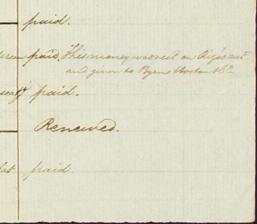 paid.
paid. This money was sent on Rizés act
and given to Byrne Horton & Co
paid.
Renewed.
paid